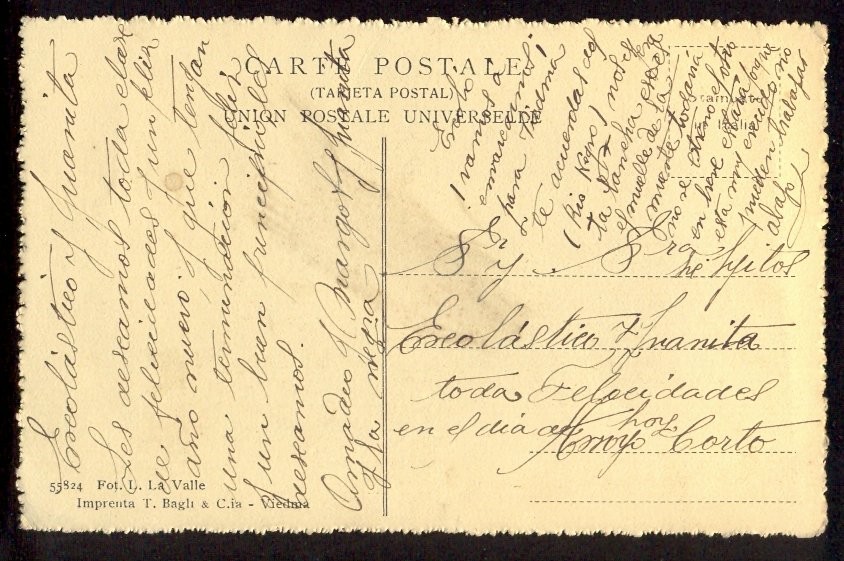 CARTE POSTALE
(TARJETA POSTAL)
UNION POSTALE UNIVERSELLE
Escolástico y Juanita
Les deseamos toda clase
de felicidades y un feliz
año nuevo y que tengan
una terminación feliz
y un buen principio les
deseamos.
Amadeo y Margot y Juanita
y la negra
Escolo
¡vamos a
embarcarnos
para Viedma!
te acuerdas del
(Rio Negro) nos es
ta lancha esta en
el muelle de la
muerte todavia
no se el otro
en breve estará porque
esta muy crecido no
pueden trabajar
abajo
Sr y Sra
é hijitos
Escolástico y Juanita
toda Felicidades
en el dia de hoy
Corto
55824 Fot. L. La Valle
Imprenta T. Bagli & C.ia - Viedma